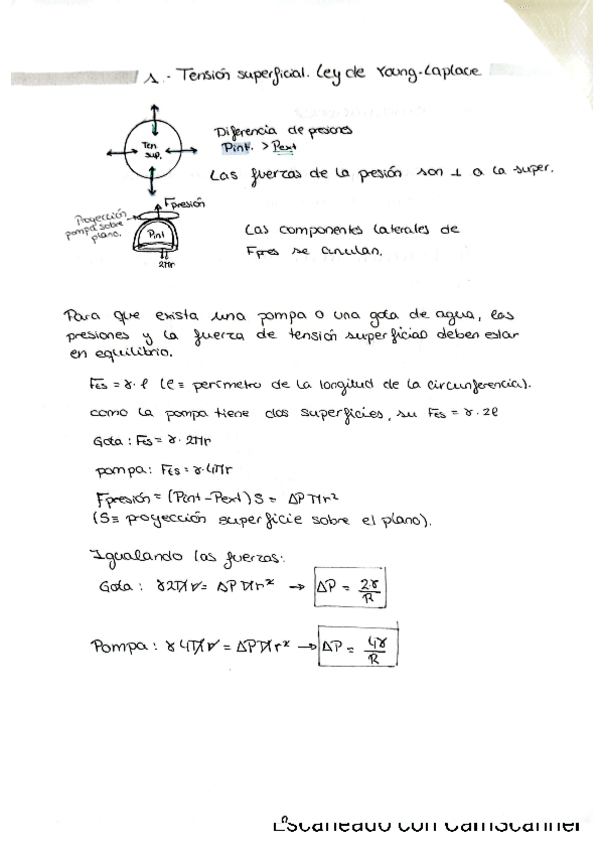 1.- Tensión superficial. Ley de Young-Laplace
Ten sup.
Diferencia de presiones
Pint. > Pext
Las fuerzas de la presión son ⊥ a la super.
Fpresión
Proyección pompa sobre plano.
Pint
2πr
Las componentes laterales de
Fpres se anulan.
Para que exista una pompa o una gota de agua, las
presiones y la fuerza de tensión superficial deben estar
en equilibrio.
Fes = γ · ℓ (ℓ ≡ perímetro de la longitud de la circunferencia).
como la pompa tiene dos superficies, su Fes = γ · 2ℓ
Gota : Fes = γ · 2πr
pompa : Fes = γ · 4πr
Fpresión = (Pint - Pext) S = ΔP πr²
(S ≡ proyección superficie sobre el plano).
Igualando las fuerzas:
Gota : γ2πr = ΔP πr² → ΔP = 2γ/R
Pompa : γ4πr = ΔPπr² → ΔP = 4γ/R
Escaneado con CamScanner